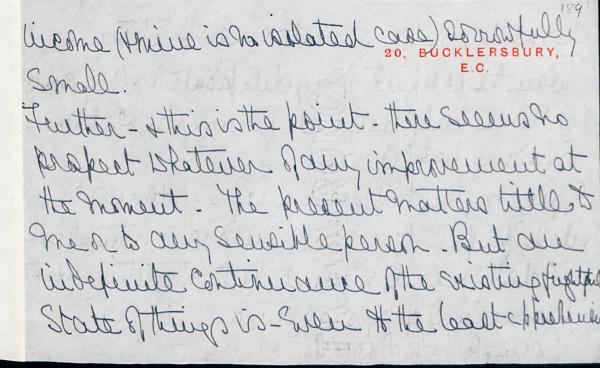 189
income (& mine is no isolated case) sorrowfully
20, BUCKLERSBURY,
E.C.
small.
Further - & this is the point - there seems no
prospect whatever of any improvement at
the moment. The present matters little to
me or to any sensible person. But an
indefinite continuance of the existing frightful
state of things is - even to the least apprehensive